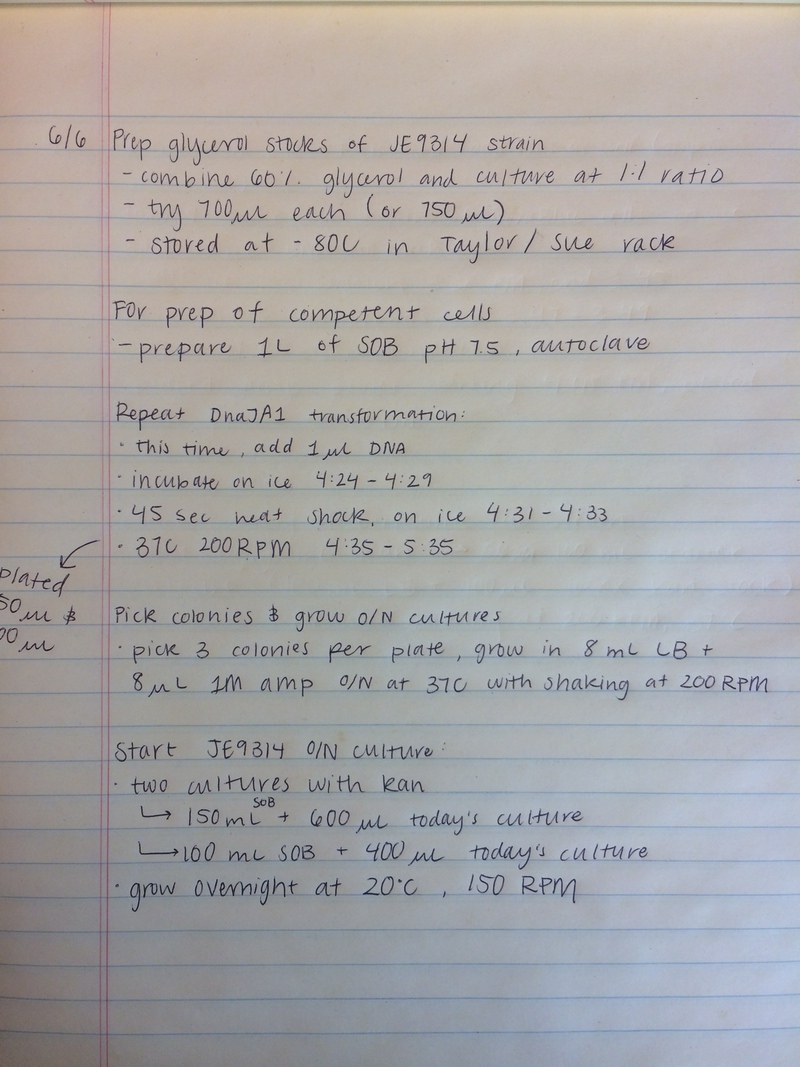 6/6 Prep glycerol stocks of JE9314 strain
- combine 60% glycerol and culture at 1:1 ratio
- try 700μL each (or 750 μL)
- stored at -80C in Taylor / Sue rack
For prep of competent cells
- prepare 1L of SOB pH 7.5, autoclave
Repeat DnaJA1 transformation:
· this time, add 1 μL DNA
· incubate on ice 4:24 - 4:29
· 45 sec heat shock, on ice 4:31 - 4:33
· 37C 200 RPM 4:35 - 5:35
plated
50 μL &
00 μL
Pick colonies & grow O/N cultures
· pick 3 colonies per plate, grow in 8 mL LB +
8 μL 1M amp O/N at 37C with shaking at 200 RPM
Start JE9314 O/N culture:
· two cultures with kan
↳ 150 mL SOB + 600 μL today's culture
↳ 100 mL SOB + 400 μL today's culture
· grow overnight at 20°C, 150 RPM